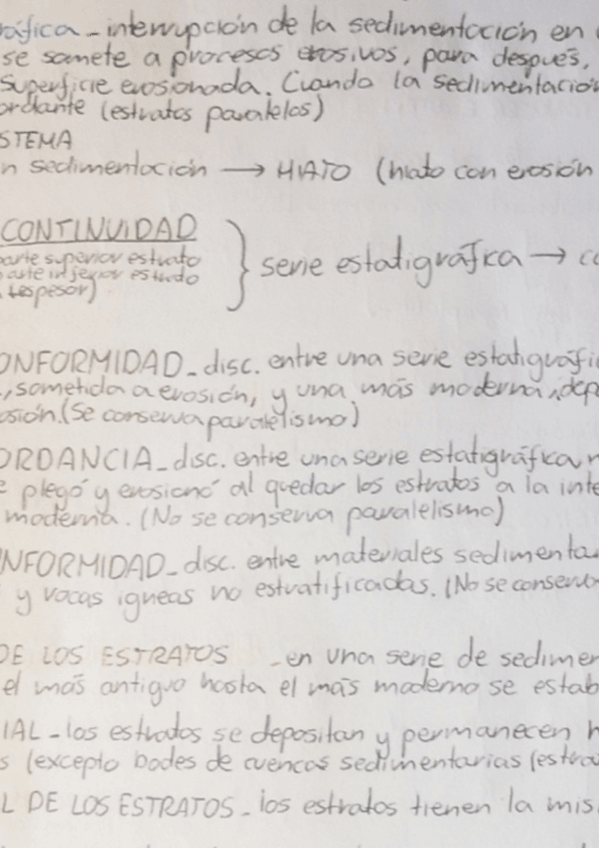 ráfica - interrupción de la sedimentación en
se somete a procesos erosivos, para después,
superficie erosionada. Cuando la sedimentación
ordante (estratos paralelos)
STEMA
n sedimentación → HIATO (hiato con erosión
CONTINUIDAD
parte superior estrato
parte inferior estrato
espesor)
} serie estatigráfica → co
ONFORMIDAD - disc. entre una serie estatigráfic
, sometida a erosión, y una más moderna, dep
osión. (Se conserva paralelismo)
ORDANCIA - disc. entre una serie estatigráfica
e plegó y erosionó al quedar los estratos a la inte
moderna. (No se conserva paralelismo)
NFORMIDAD - disc. entre materiales sedimenta
y rocas igneas no estratificadas. (No se conserva
DE LOS ESTRATOS - en una serie de sedimen
el más antiguo hasta el más moderno se estab
IAL - los estratos se depositan y permanecen h
s (excepto bodes de cuencas sedimentarias (estra
L DE LOS ESTRATOS - los estratos tienen la mis